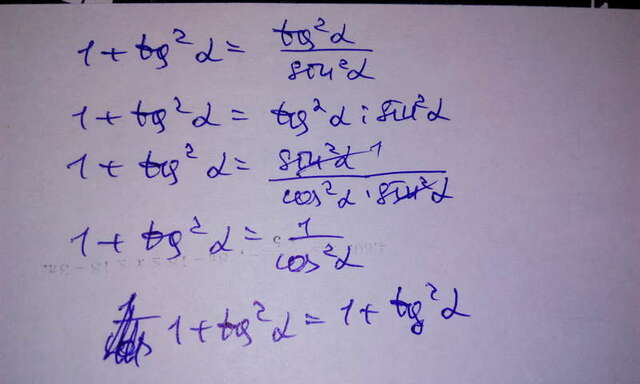 1 + tg²α = tg²α / sin²α
1 + tg²α = tg²α : sin²α
1 + tg²α = sin²α 1 / cos²α · sin²α
1 + tg²α = 1 / cos²α
1 + tg²α = 1 + tg²α